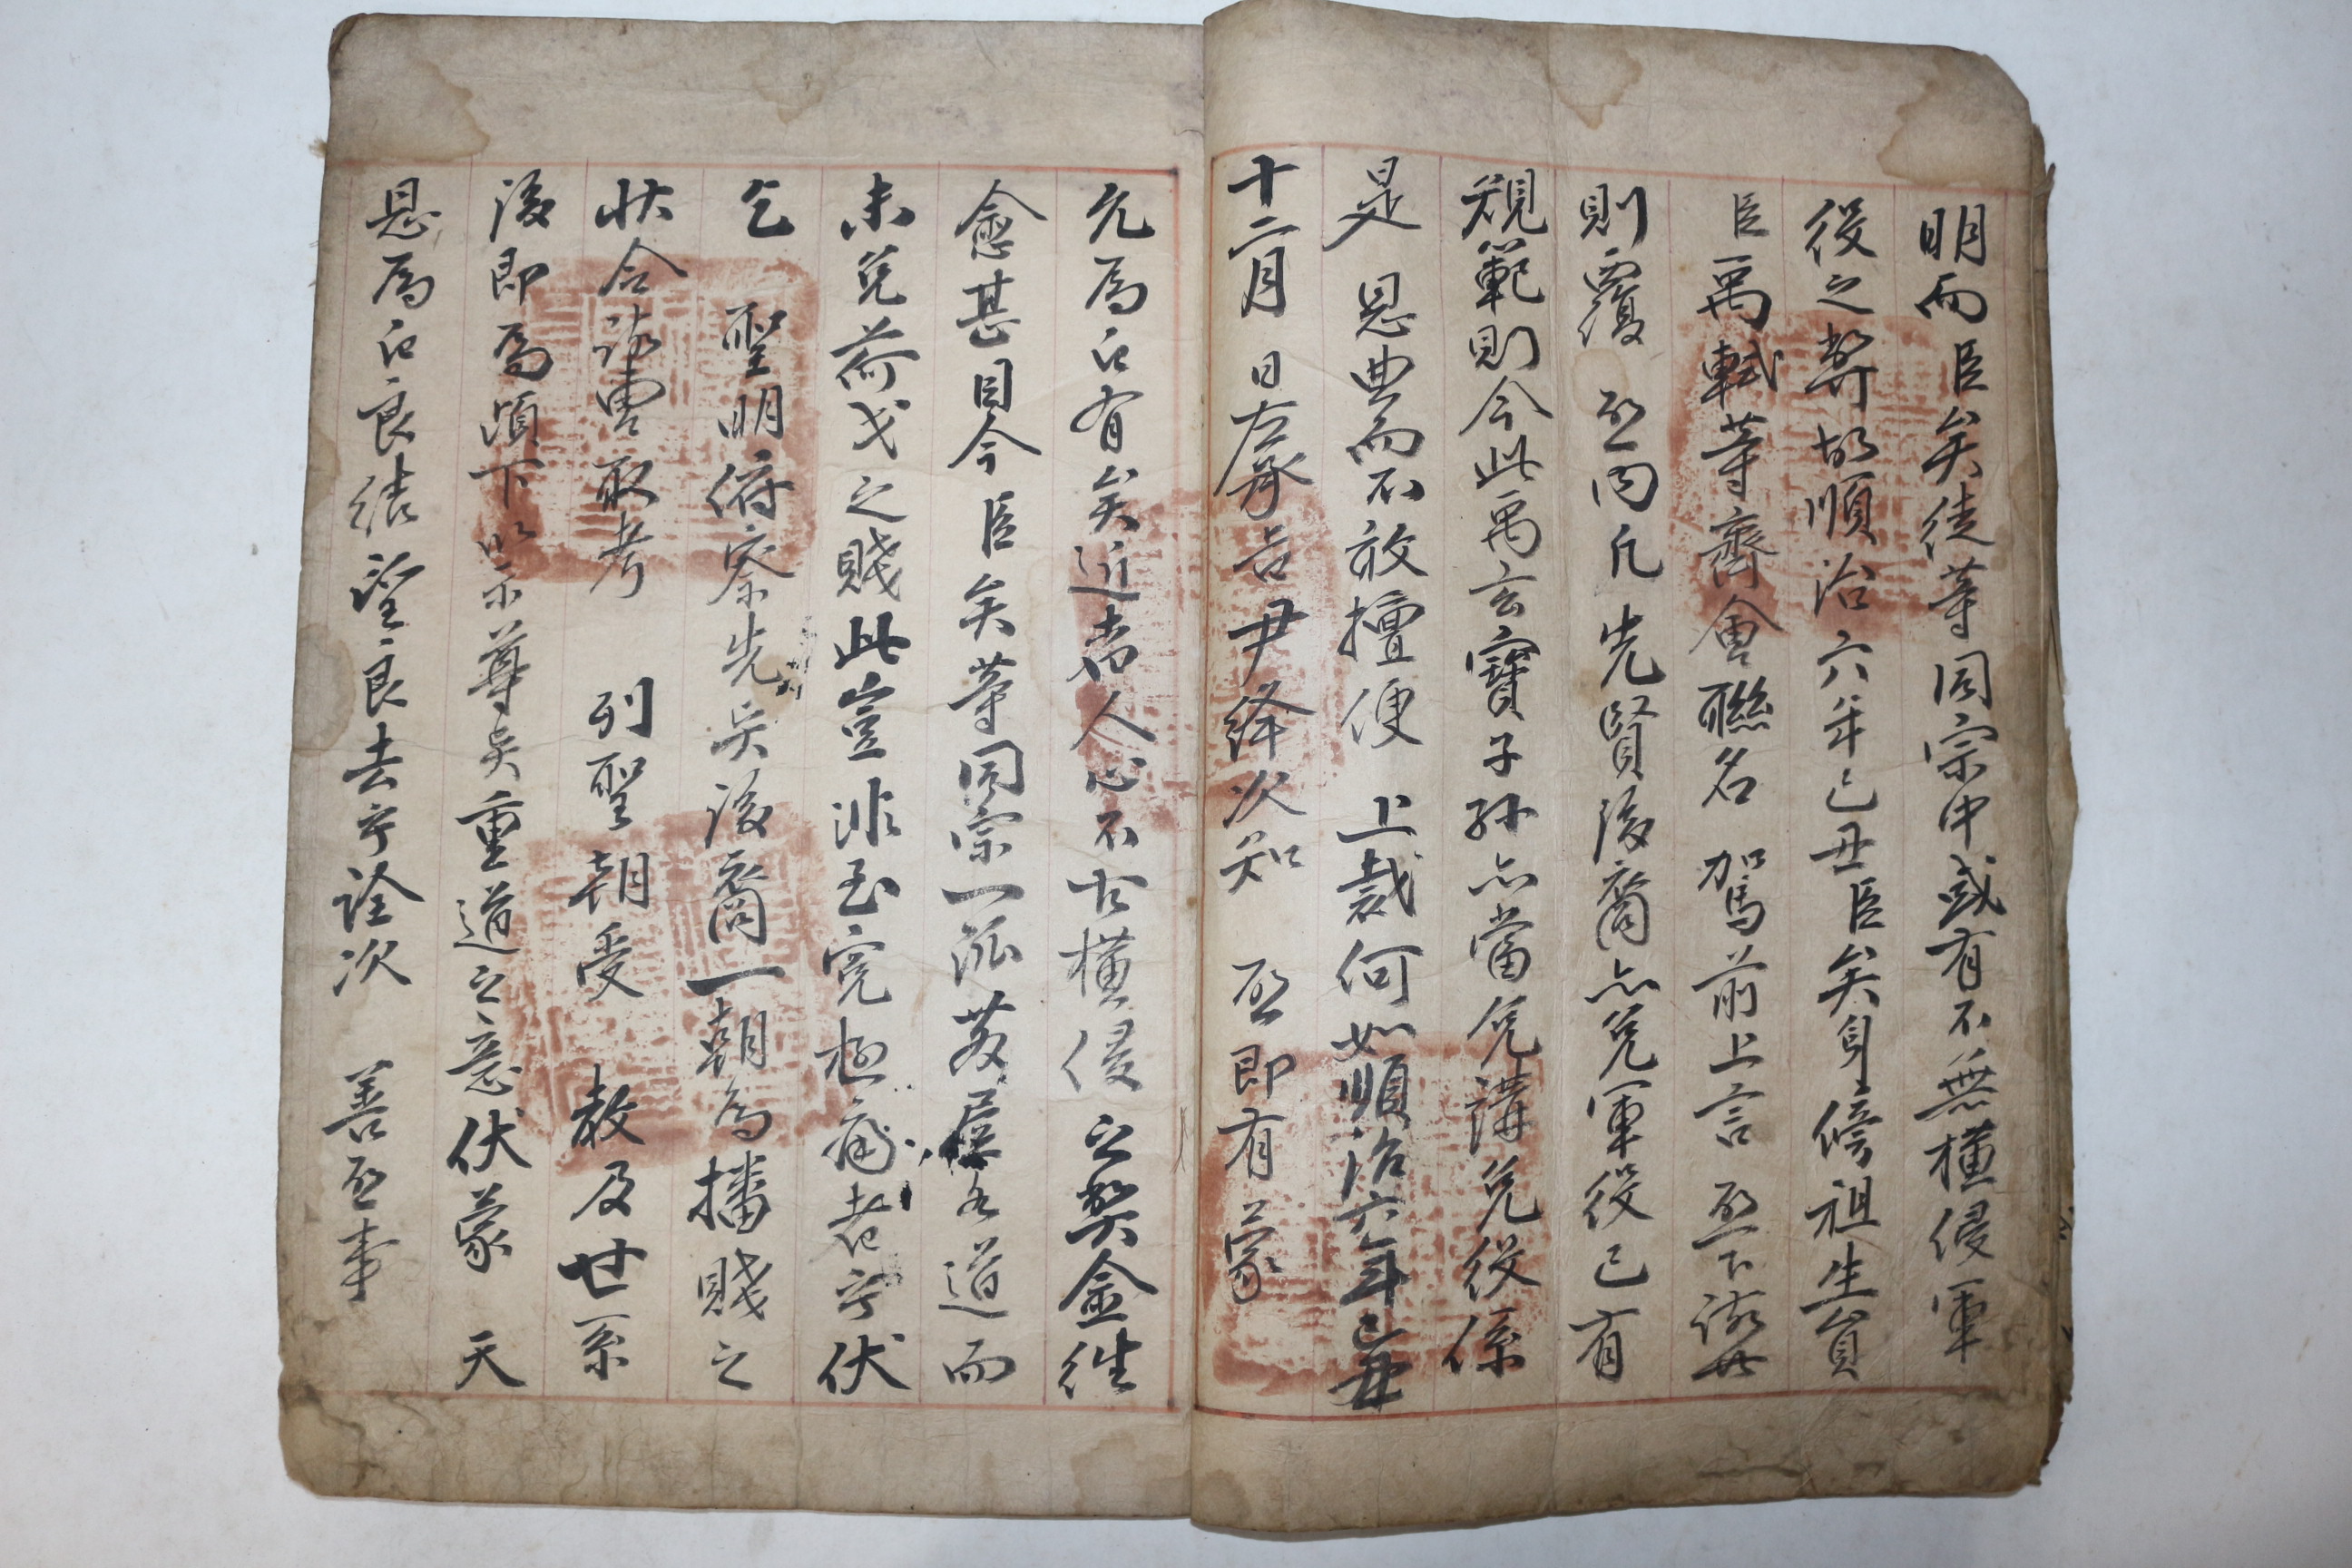 明而臣矣徒等同宗中或有不無橫侵軍
役之弊故順治六年己丑臣矣身傍祖生員
臣禹軾等齊會聯名 駕前上言 啓下該曹
則覆 啓內凡先賢後裔亦免軍役已有
規範則今此禹玄寶子孫亦當免講免役係
是 恩典而不敢擅便 上裁何如順治六年己丑
十二月 日右承旨尹絳次知 啓即有 蒙
允爲白有矣近者人心不古橫侵之弊愈往
愈甚目今臣矣等同宗一派蔘居各道而
未免荷戈之賤此豈非至冤極痛者乎伏
乞 聖明俯察先矣後裔一朝爲播賤之
狀令該曹取考 列聖朝受 敎及世系
後即爲頉下以示尊矣重道之意伏蒙 天
恩爲白良結望良去乎詮次 善啓事